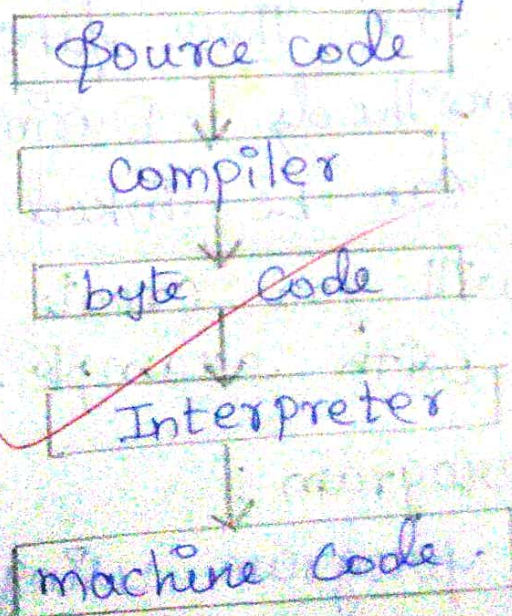 Source code
Compiler
byte code
Interpreter
machine code.